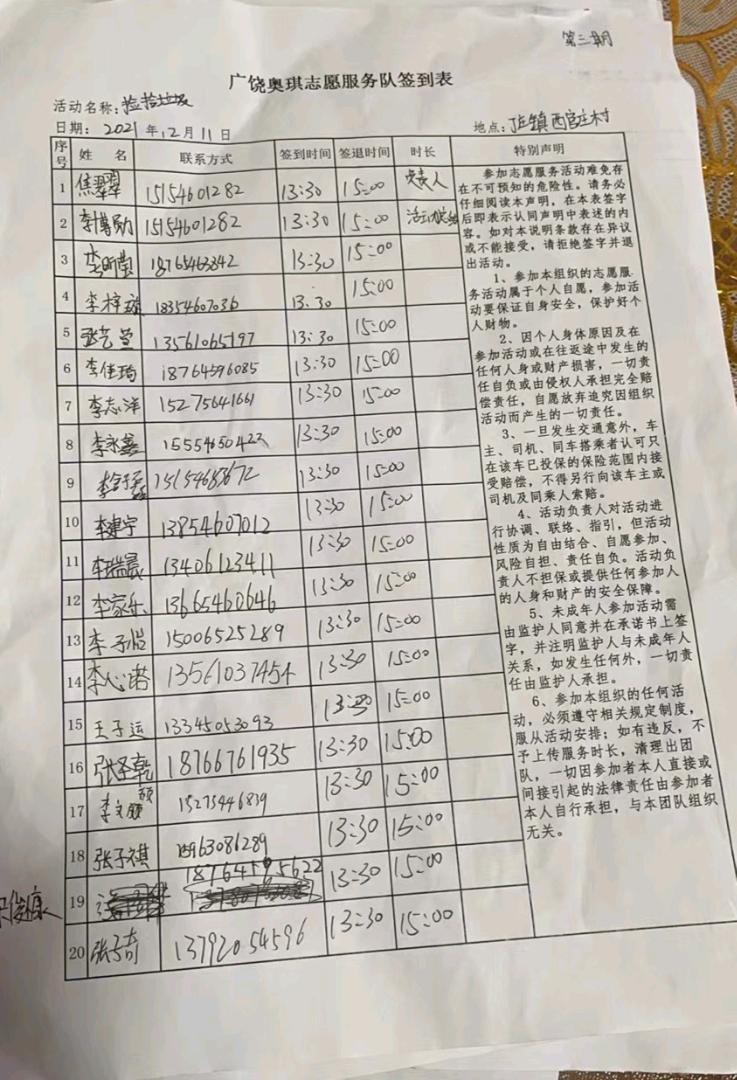 第三期
广饶奥琪志愿服务队签到表
活动名称：捡拾垃圾
日期：2021年12月11日
地点：丁庄镇西宫庄村
序号 姓 名 联系方式 签到时间 签退时间 时长 特别声明
1 焦翠翠 15154601282 13:30 15:00 负责人
2 李博勋 15154601282 13:30 15:00
3 18765463342 13:30 15:00
4 李梓 18354607036 13:30 15:00
5 张艺萱 13561065197 13:30 15:00
6 李佳琦 18764596085 13:30 15:00
7 李志洋 15275641661 13:30 15:00
8 李永鑫 15554650422 13:30 15:00
9 13:30 15:00
10 李建宇 13854607012 13:30 15:00
11 李瑞晨 13406123411 13:30 15:00
12 李家乐 13665460646 13:30 15:00
13 李子怡 15006525289 13:30 15:00
14 李心诺 13561037454 13:30 15:00
15 王子运 13345053093 13:30 15:00
16 张圣乾 18766761935 13:30 15:00
17 李文颐 15273446839 13:30 15:00
18 张子祺 15963086289 13:30 15:00
19 18764595622 13:30 15:00
20 张子奇 13792054596 13:30 15:00
参加志愿服务活动难免存
在不可预知的危险性。请务必
仔细阅读本声明，在本表签字
后即表示认同声明中表述的内
容。如对本说明条款存在异议
或不能接受，请拒绝签字并退
出活动。
1、参加本组织的志愿服
务活动属于个人自愿，参加活
动要保证自身安全，保护好个
人财物。
2、因个人身体原因及在
参加活动或在往返途中发生的
任何人身或财产损害，一切责
任自负或由侵权人承担完全赔
偿责任，自愿放弃追究因组织
活动而产生的一切责任。
3、一旦发生交通意外，车
主、司机、同车搭乘者认可只
在该车已投保的保险范围内接
受赔偿，不得另行向该车主或
司机及同乘人索赔。
4、活动负责人对活动进
行协调、联络、指引，但活动
性质为自由结合、自愿参加、
风险自担、责任自负。活动负
责人不担保或提供任何参加人
的人身和财产的安全保障。
5、未成年人参加活动需
由监护人同意并在承诺书上签
字，并注明监护人与未成年人
关系，如发生任何外，一切责
任由监护人承担。
6、参加本组织的任何活
动，必须遵守相关规定制度，
服从活动安排；如有违反，不
予上传服务时长，清理出团
队，一切因参加者本人直接或
间接引起的法律责任由参加者
本人自行承担，与本团队组织
无关。